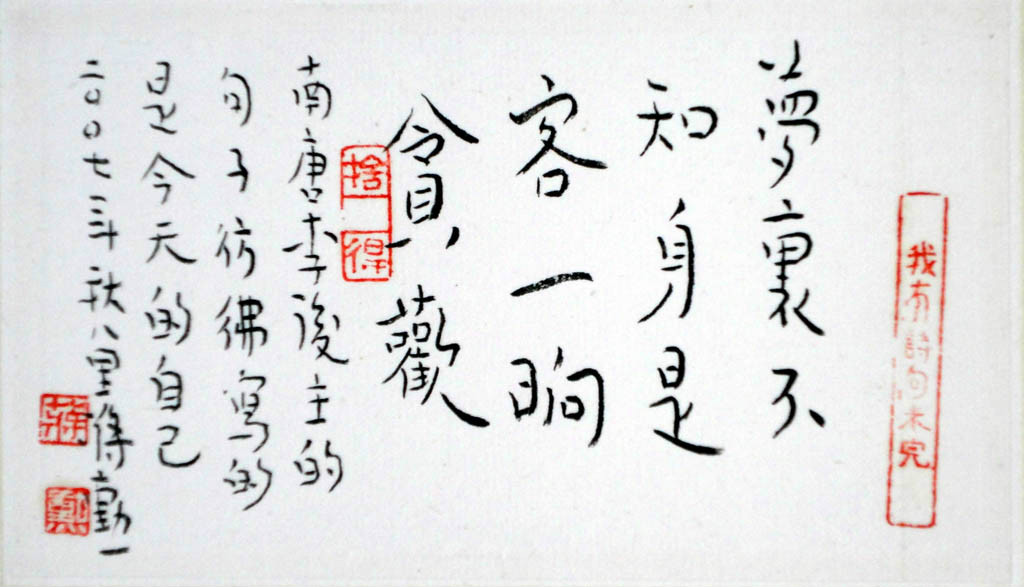 我有詩句未完
夢裏不
知身是
客一晌
貪歡
捨得
南唐李後主的
句子彷彿寫的
是今天的自己
二〇〇七年秋八里蔣勳
蔣
勳